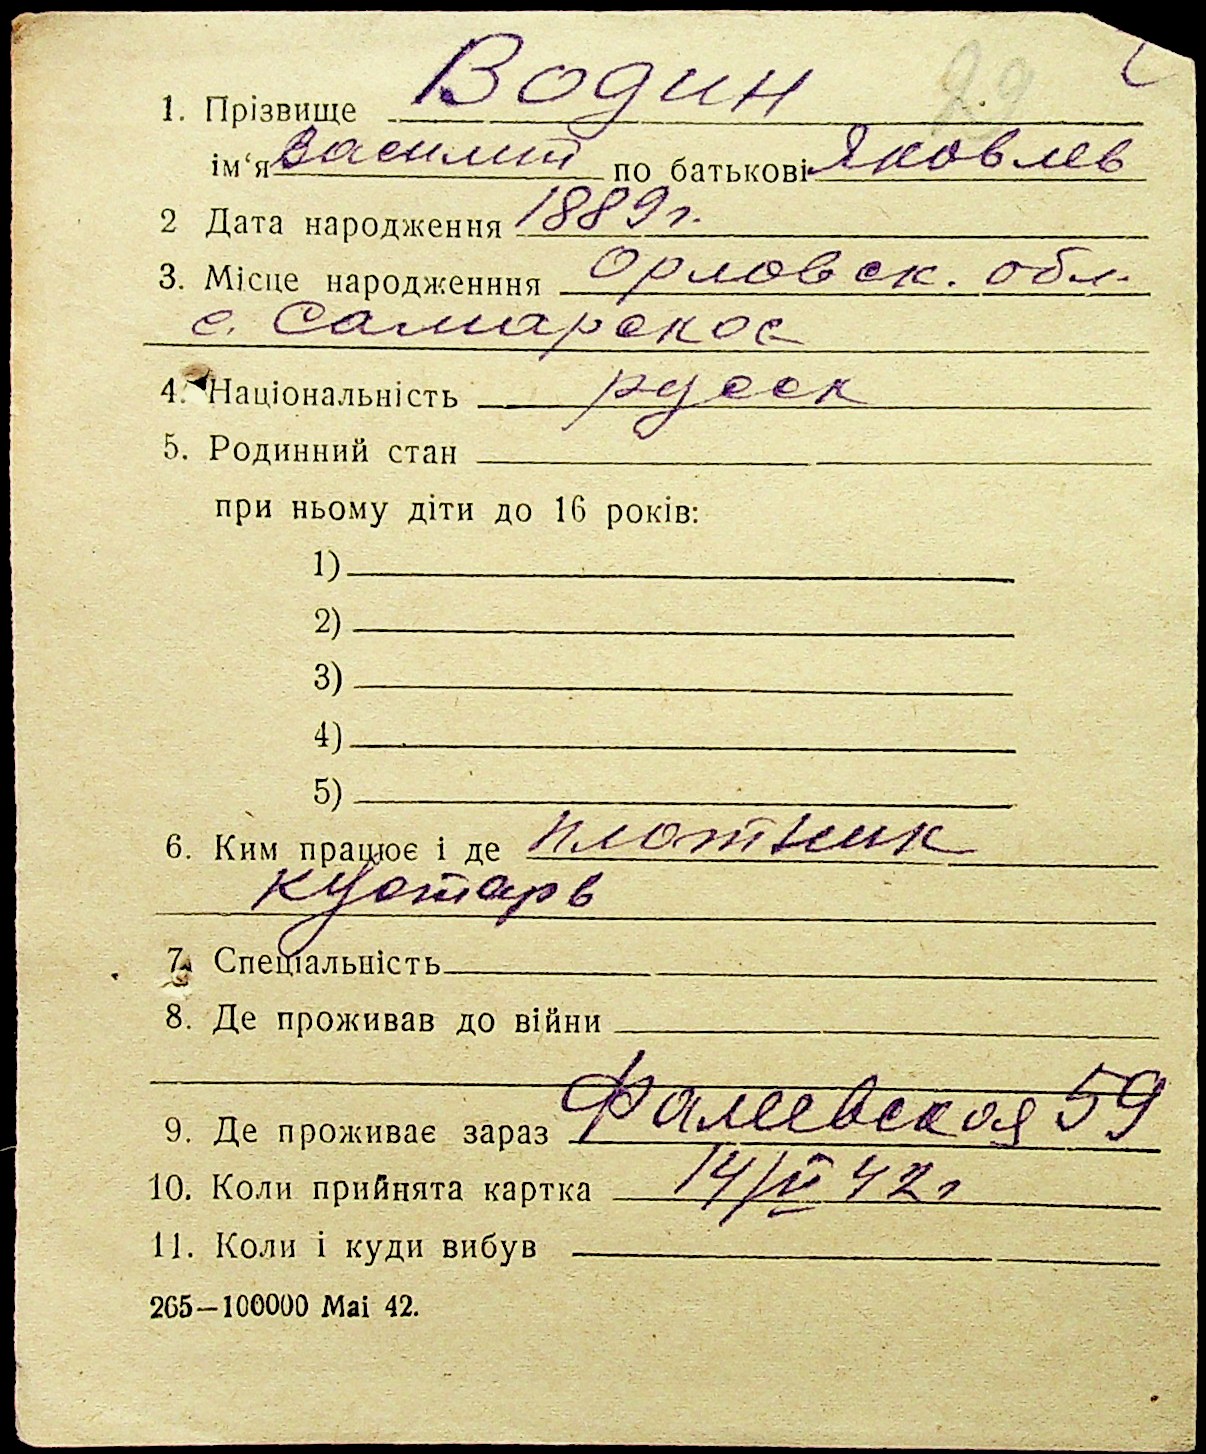 29
1. Прізвище Водин
ім‘я Василий по батькові Яковлев
2 Дата народження 1889 г.
3. Місце народженння Орловск. обл.
с. Самарское
4. Національність русск
5. Родинний стан
при ньому діти до 16 років:
1)
2)
3)
4)
5)
6. Ким працює і де плотник
кустарь
7. Спеціальність
8. Де проживав до війни
9. Де проживає зараз Фалеевская 59
10. Коли прийнята картка 14/VI 42 г
11. Коли і куди вибув
265—100000 Mai 42.